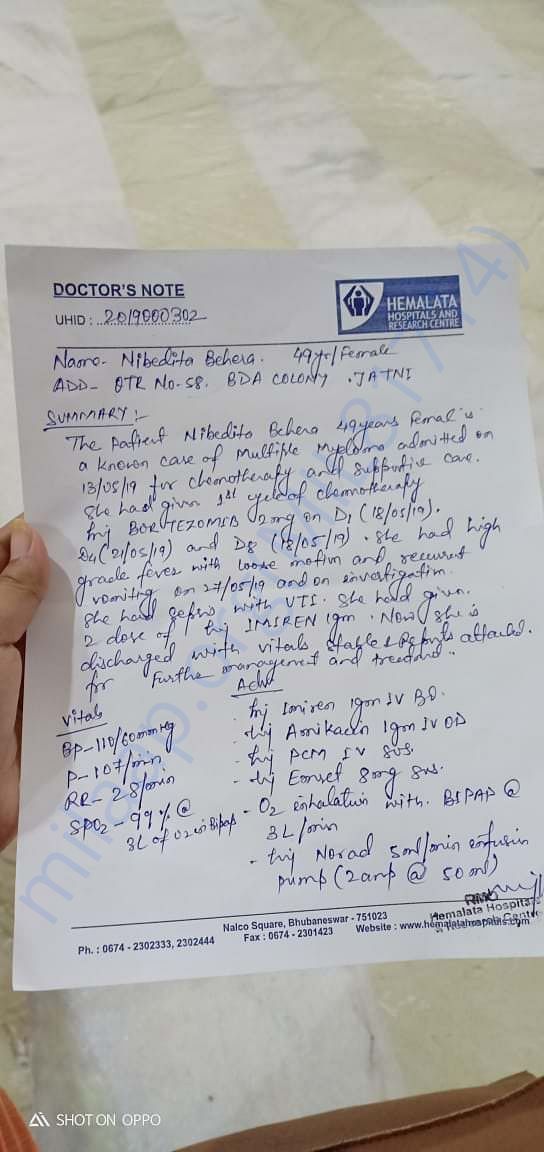 DOCTOR'S NOTE
UHID : 2019000302
HEMALATA
HOSPITALS AND
RESEARCH CENTRE
Name- Nibedita Behera. 49yr/Female
ADD- QTR No-58. BDA COLONY. JATNI
SUMMARY :-
The Patient Nibedita Behera 49years Female is
a known case of Multiple Myeloma admitted on
13/05/19 for chemotherapy and Supportive care.
She had given 1st cycle of chemotherapy
Inj BORTEZOMIB 2mg on D1 (18/05/19).
D4 (21/05/19) and D8 (18/05/19). she had high
grade fever with loose motion and recurrent
vomiting on 27/05/19 and on investigation.
She had sepsis with UTI. She had given.
2 dose of Inj IMIREN 1gm. Now she is
discharged with vitals stable & Reports attached.
for Further management and treatment..
Vitals
BP-110/60mmHg
P-107/min
RR-28/min
SPO2-99% @
3L of O2 in Bipap
Adv
- Inj Imiren 1gm IV BD.
- Inj Amikacin 1gm IV OD
- Inj PCM IV SOS.
- Inj Emset 8mg SOS.
- O2 inhalation with. BIPAP @
3L/min
- Inj Norad 5ml/min infusion
pump (2amp @ 50ml)
RMO
Hemalata Hospitals
& Research Centre
Nalco Square, Bhubaneswar - 751023
Ph. : 0674 - 2302333, 2302444 Fax : 0674 - 2301423 Website : www.hemalatahospitals.com
SHOT ON OPPO